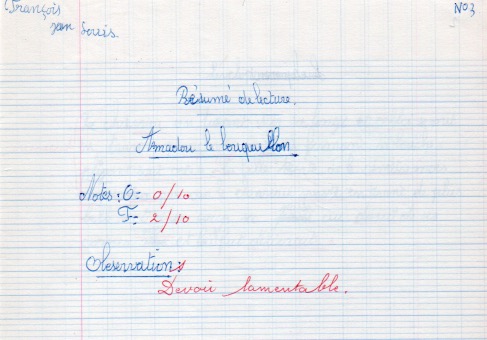 François
Jean Louis.
No 3
Résumé de lecture.
Amadou le bouquillon.
Notes : O = 0/10
F = 2/10
Observations
Devoir lamentable.